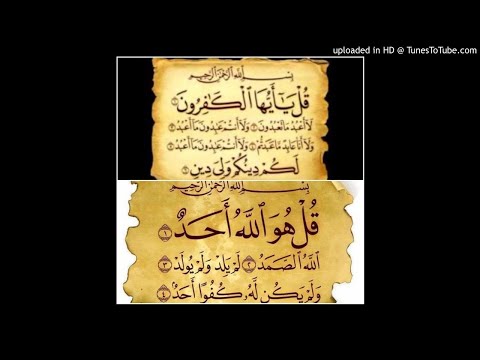 uploaded in HD @ TunesToTube.com
بِسْمِ اللَّهِ الرَّحْمَٰنِ الرَّحِيمِ
قُلْ يَا أَيُّهَا الْكَافِرُونَ ١
لَا أَعْبُدُ مَا تَعْبُدُونَ ٢ وَلَا أَنْتُمْ عَابِدُونَ مَا أَعْبُدُ ٣
وَلَا أَنَا عَابِدٌ مَا عَبَدْتُمْ ٤ وَلَا أَنْتُمْ عَابِدُونَ مَا أَعْبُدُ ٥
لَكُمْ دِينُكُمْ وَلِيَ دِينِ ٦
بِسْمِ اللَّهِ الرَّحْمَٰنِ الرَّحِيمِ
قُلْ هُوَ اللَّهُ أَحَدٌ ١
اللَّهُ الصَّمَدُ ٢ لَمْ يَلِدْ وَلَمْ يُولَدْ ٣
وَلَمْ يَكُنْ لَهُ كُفُوًا أَحَدٌ ٤